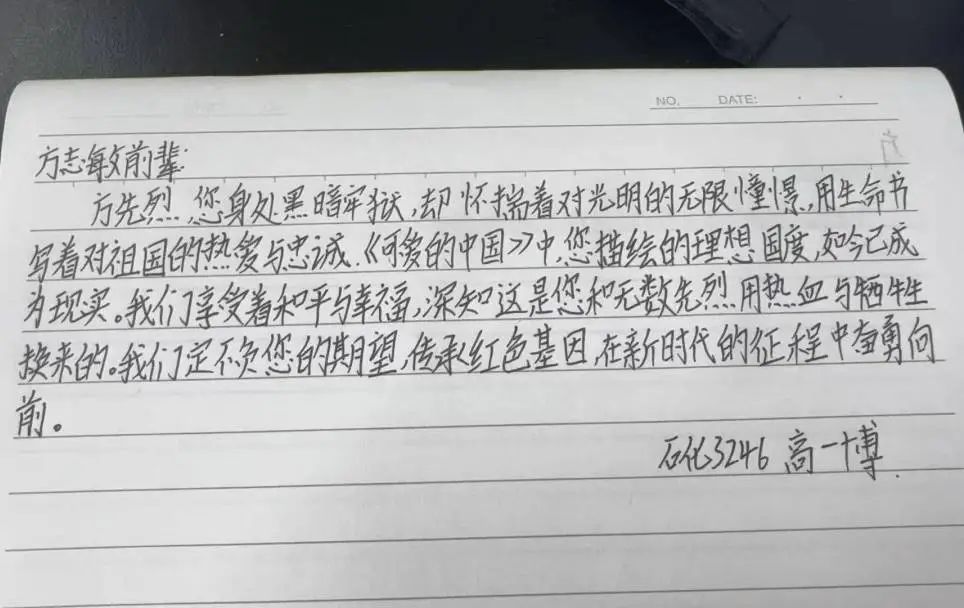 NO. DATE: · ·
方志敏前辈:
方先烈,您身处黑暗牢狱,却怀揣着对光明的无限憧憬,用生命书
写着对祖国的热爱与忠诚.《可爱的中国》中,您描绘的理想国度,如今已成
为现实。我们享受着和平与幸福,深知这是您和无数先烈用热血与牺牲
换来的。我们定不负您的期望,传承红色基因,在新时代的征程中奋勇向
前。
石化3246 高一博